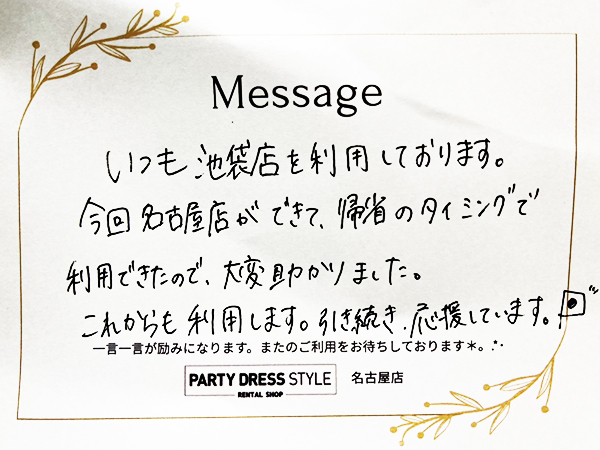 Message
いつも池袋店を利用しております。
今回名古屋店ができて、帰省のタイミングで
利用できたので、大変助かりました。
これからも利用します。引き続き、応援しています。
一言一言が励みになります。またのご利用をお待ちしております＊。.*･
PARTY DRESS STYLE 名古屋店
RENTAL SHOP